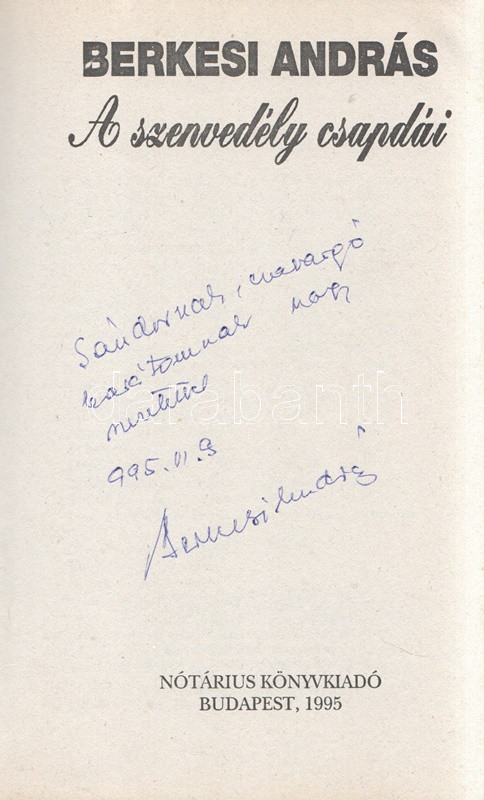 BERKESI ANDRÁS
A szenvedély csapdái
Sándornak, csavargó
barátomnak nagy
szeretettel
995. VI. 9
Berkesi András
darabanth
NÓTÁRIUS KÖNYVKIADÓ
BUDAPEST, 1995